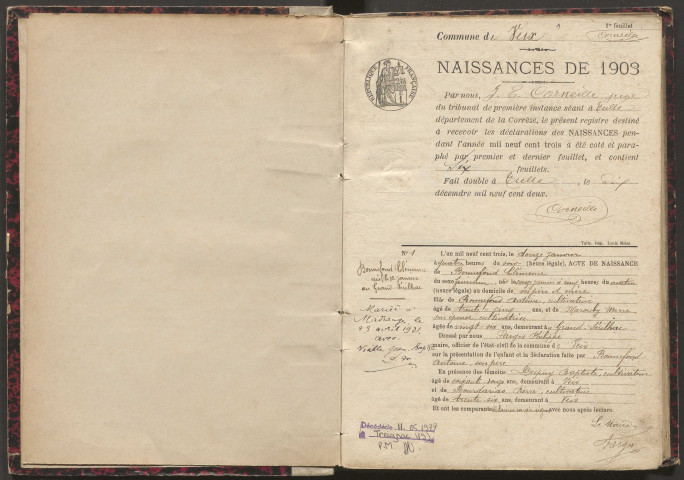 1er feuillet
Commune de Veix
Corneille
NAISSANCES DE 1903
RÉPUBLIQUE FRANÇAISE
Par nous, J. E. Corneille, juge
du tribunal de première instance séant à Tulle
département de la Corrèze, le présent registre destiné
à recevoir les déclarations des NAISSANCES pen-
dant l'année mil neuf cent trois a été coté et para-
phé par premier et dernier feuillet, et contient
Dix feuillets.
Fait double à Tulle, le dix
décembre mil neuf cent deux.
Corneille
Tulle, Imp. Louis Moles
N° 1
Bonnefond Clémence
au Grand Seilhac
Mariée à
Madranges le
23 avril 1921
avec
Vialle Jean
Décédée 11.05.1979
à Treignac (19)
L'an mil neuf cent trois, le douze janvier
à quatre heures du soir (heure légale), ACTE DE NAISSANCE
de Bonnefond Clémence
du sexe féminin, né le onze janvier à cinq heures du matin
(heure légale) au domicile de ses père et mère
fille de Bonnefond Antoine, cultivateur
âgé de trente cinq ans, et de Marie
son épouse cultivatrice
âgée de vingt six ans, demeurant à Grand Seilhac
Dressé par nous Farges Philippe
maire, officier de l'état-civil de la commune de Veix
sur la présentation de l'enfant et la déclaration faite par Bonnefond
Antoine, son père
En présence des témoins Dupuy Baptiste, cultivateur
âgé de soixante onze ans, demeurant à Veix
et de Bourdarias Pierre, cultivateur
âgé de trente six ans, demeurant à Veix
Et ont les comparants signé avec nous après lecture.
Le Maire
Farges